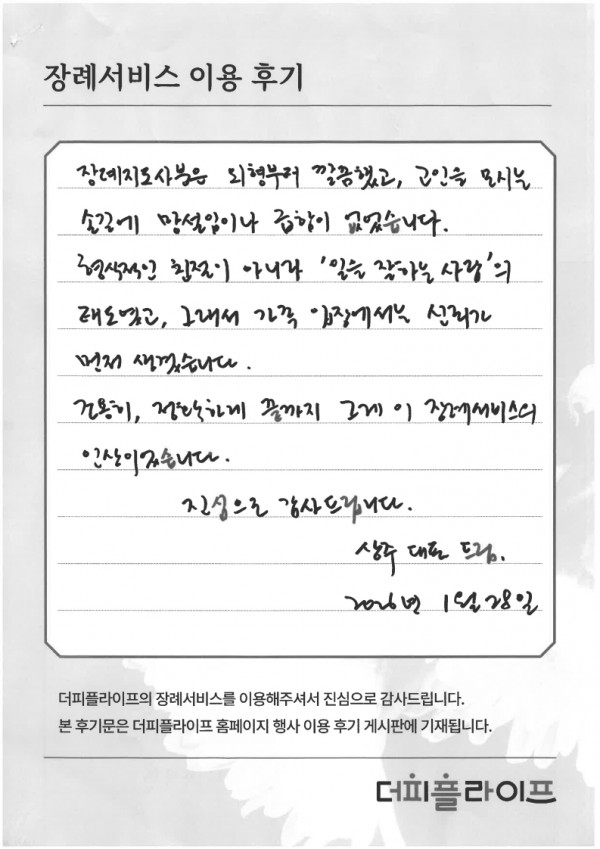 장례서비스 이용 후기
장례지도사분은 외형부터 깔끔했고, 고인을 모시는
손길에 망설임이나 급함이 없었습니다.
형식적인 친절이 아니라 '일을 잘하는 사람'의
태도였고, 그래서 가족 입장에서는 신뢰가
먼저 생겼습니다.
건용히, 정확하게 끝까지 그게 이 장례서비스의
인상이었습니다.
진심으로 감사드립니다.
상주 대표 드림.
2026년 1월 28일
더피플라이프의 장례서비스를 이용해주셔서 진심으로 감사드립니다.
본 후기문은 더피플라이프 홈페이지 행사 이용 후기 게시판에 기재됩니다.
더피플라이프